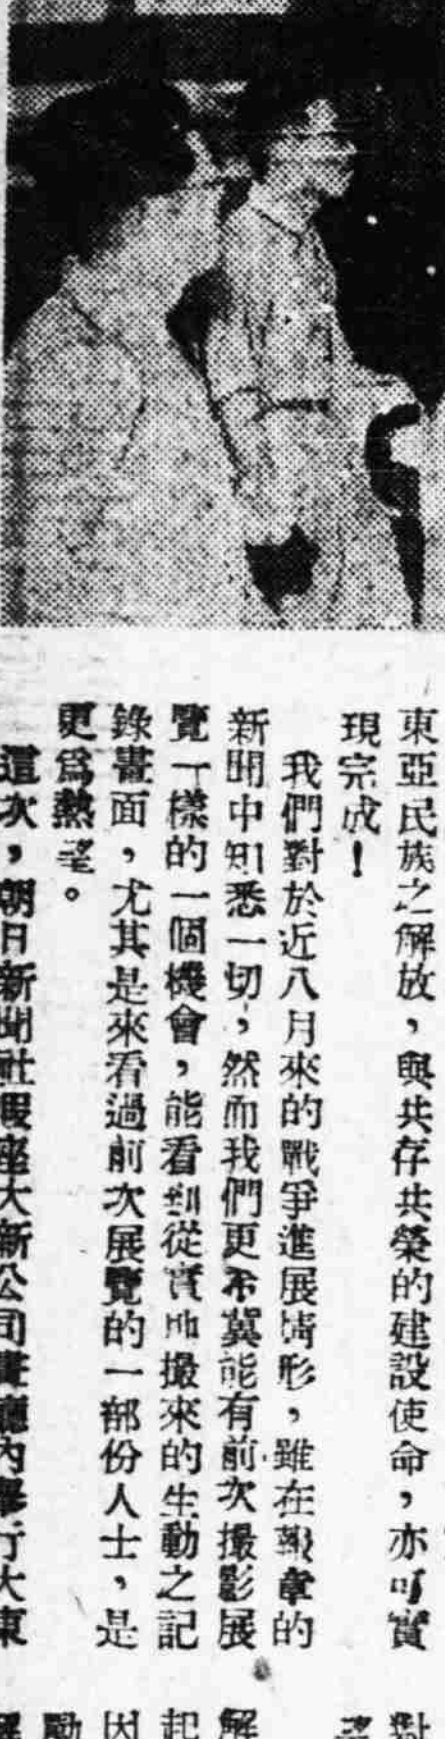 東亞民族之解放，與共存共榮的建設使命，亦可實
現完成！
我們對於近八月來的戰爭進展情形，雖在報章的
新聞中知悉一切，然而我們更希冀能有前次攝影展
覽一樣的一個機會，能看到從實地撮來的生動之記
錄畫面，尤其是來看過前次展覽的一部份人士，是
更爲熱望。
這次，朝日新聞社假座大新公司畫廳內舉行大東
對
解
起
因
勵